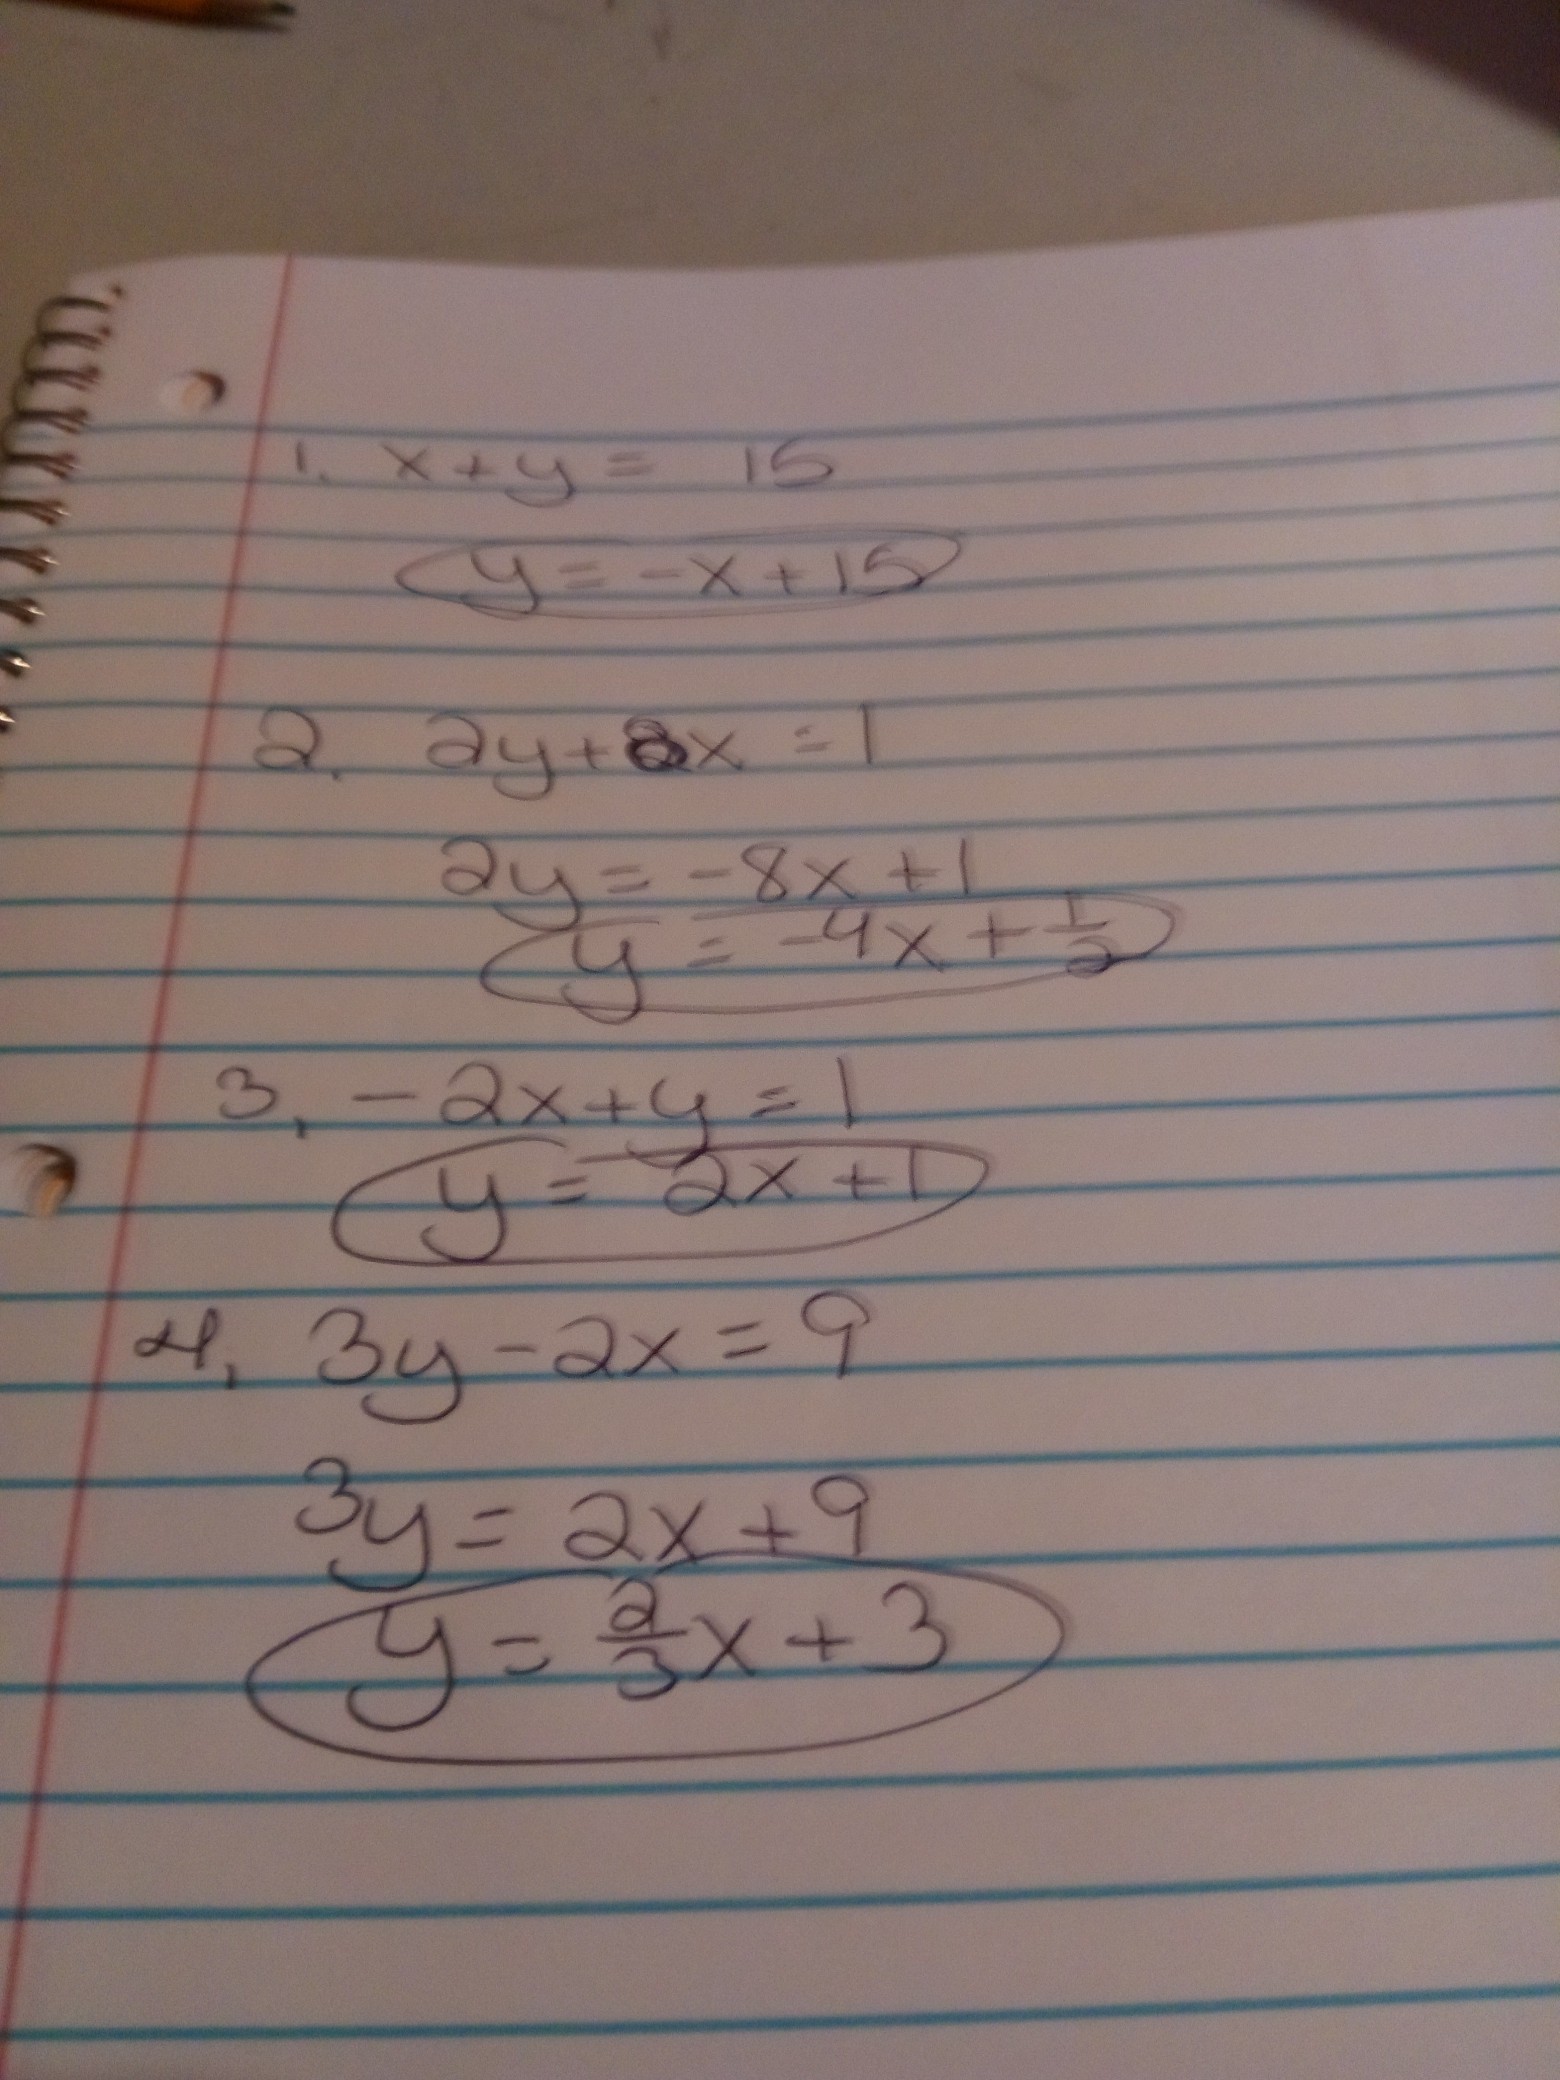 1. x+y = 15
y = -x+15
2. 2y+8x = 1
2y = -8x+1
y = -4x+1/2
3. -2x+y = 1
y = 2x+1
4. 3y-2x = 9
3y = 2x+9
y = 2/3x+3